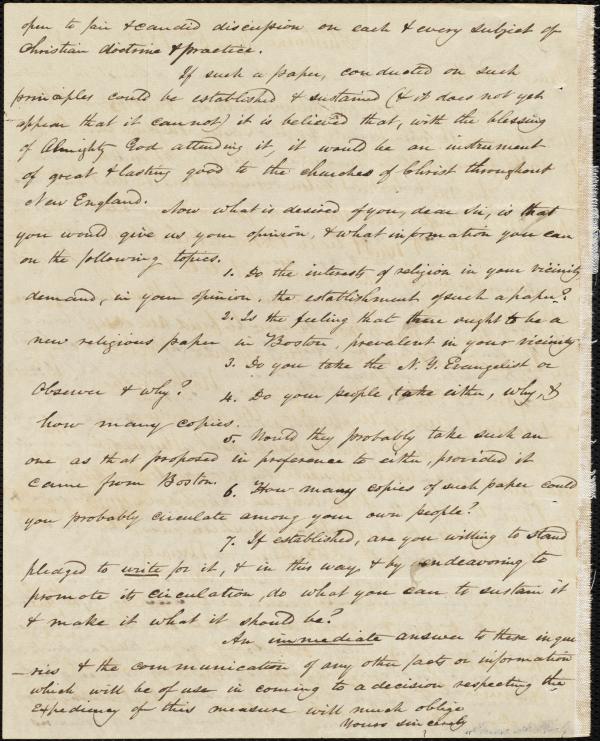 open to fair & candid discussion on each & every subject of
Christian doctrine & practice.
If such a paper, conducted on such
principles could be established & sustained (& it does not yet
appear that it cannot) it is believed that, with the blessing
of Almighty God attending it, it would be an instrument
of great & lasting good to the churches of Christ throughout
New England.
Now what is desired of you, dear Sir, is that
you would give us your opinion, & what information you can
on the following topics.
1. Do the interests of religion in your vicinity
demand, in your opinion, the establishment of such a paper?
2. Is the feeling that there ought to be a
new religious paper in Boston, prevalent in your vicinity
3. Do you take the N.Y. Evangelist or
Observer & why?
4. Do your people take either, why, &
how many copies.
5. Would they probably take such an
one as that proposed in preference to either, provided it
came from Boston.
6. How many copies of such paper could
you probably circulate among your own people?
7. If established, are you willing to stand
pledged to write for it, & in this way, & by endeavoring to
promote its circulation, do what you can to sustain it
& make it what it should be?
An immediate answer to these inque
ries & the communication of any other facts or information
which will be of use in coming to a decision respecting the
expediency of this measure will much oblige
Yours sincerely